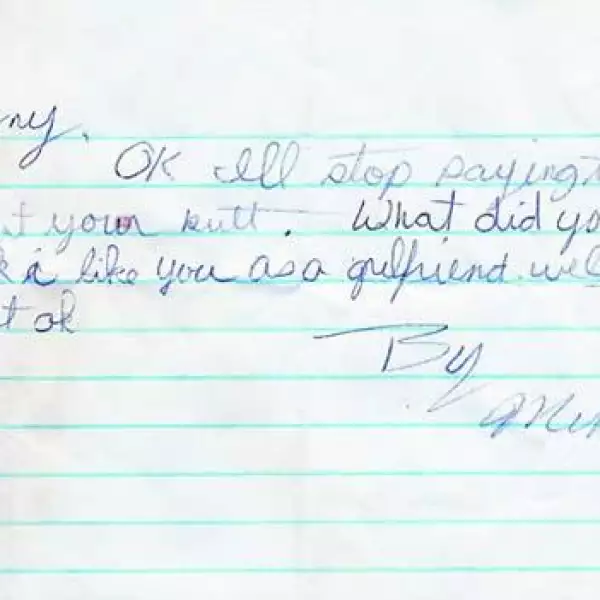 ny.
OK Ill stop saying
t your butt. What did yo
k i like you as a grlfriend. well
t ok
By